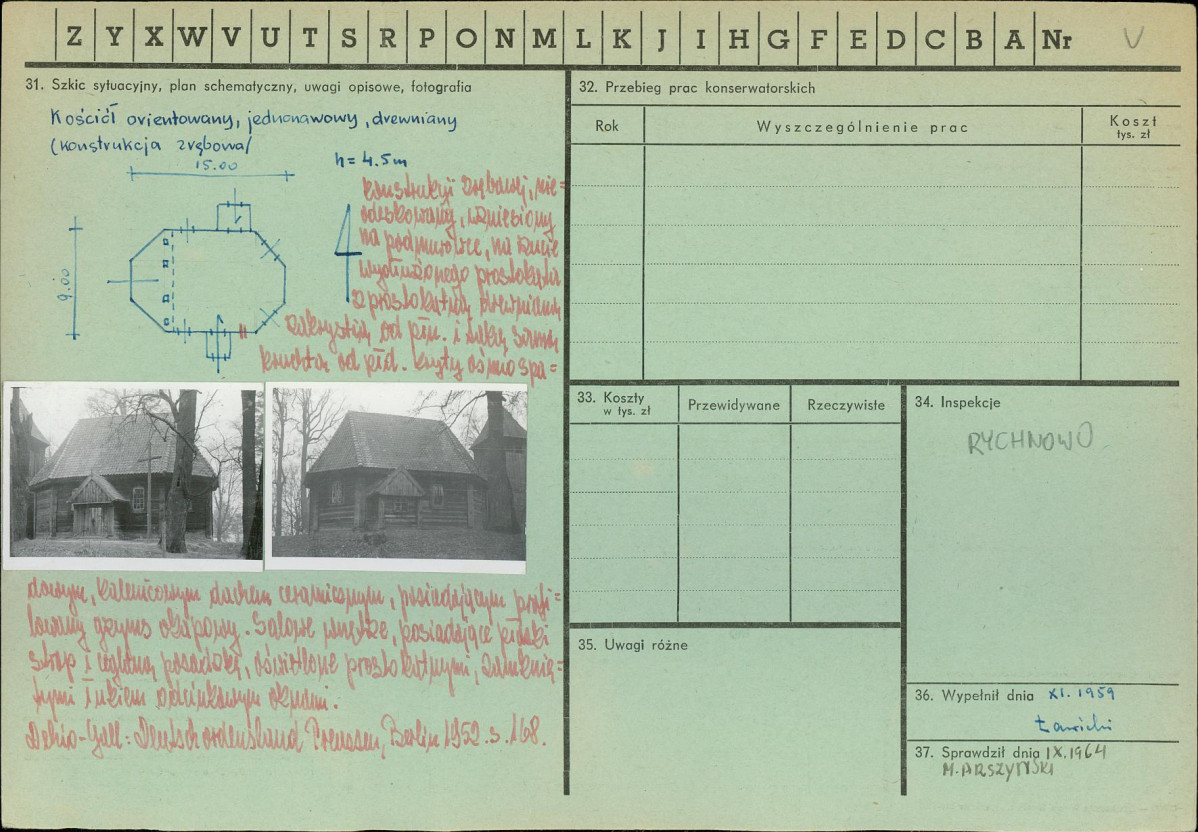 Z Y X W V U T S R P O N M L K J I H G F E D C B A Nr V
31. Szkic sytuacyjny, plan schematyczny, uwagi opisowe, fotografia
Kościół orientowany, jednonawowy, drewniany
(konstrukcja zrębowa/
15.00
h = 4.5m
9.00
konstrukcji zrębowej, nie=
odeskowany, wzniesiony
na podmurówce, na rzucie
wydłużonego prostokąta
z prostokątną drewnianą
zakrystią od płn. i taką samą
kruchtą od płd. kryty ośmiospa=
dowym, kalenicowym dachem ceramicznym, posiadającym profi=
lowany gzyms okapowy. Salowe wnętrze, posiadające płaski
strop i ceglaną posadzkę, oświetlone prostokątnymi, zamknię=
tymi łukiem odcinkowym oknami.
Dehio-Gall: Deutschordensland Preussen, Berlin 1952 s. 168.
32. Przebieg prac konserwatorskich
Rok
Wyszczególnienie prac
Koszt
tys. zł
33. Koszty
w tys. zł
Przewidywane
Rzeczywiste
34. Inspekcje
RYCHNOWO
35. Uwagi różne
36. Wypełnił dnia XI. 1959
Ławicki
37. Sprawdził dnia IX.1964
M. ARSZYŃSKI